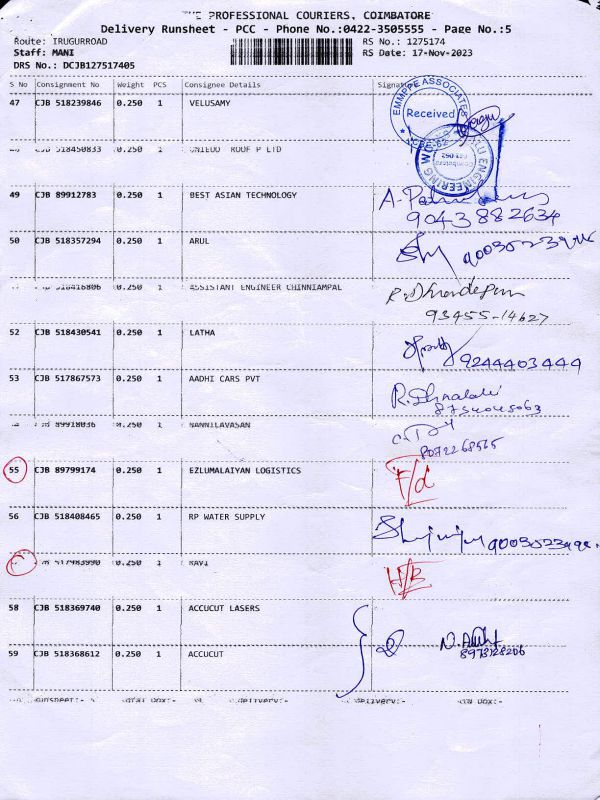 THE PROFESSIONAL COURIERS, COIMBATORE
Delivery Runsheet - PCC - Phone No.:0422-3505555 - Page No.:5
Route: TRUGURROAD RS No.: 1275174
Staff: MANI RS Date: 17-Nov-2023
DRS No.: DCJB127517405
S No Consignment No Weight PCS Consignee Details Signature
47 CJB 518239846 0.250 1 VELUSAMY
EMMPPE ASSOCIATES
Received
CBE-62
518450833 0.250 1 ROOF P LTD
ENGINEERING
49 CJB 89912783 0.250 1 BEST ASIAN TECHNOLOGY
9043882634
50 CJB 518357294 0.250 1 ARUL
518416806 0.250 1 ASSISTANT ENGINEER CHINNIAMPAL
93455-14627
52 CJB 518430541 0.250 1 LATHA
9244403444
53 CJB 517867573 0.250 1 AADHI CARS PVT
89918036 0.250 1 NANNILAVASAN
8072268565
55 CJB 89799174 0.250 1 EZLUMALAIYAN LOGISTICS
F/d
56 CJB 518408465 0.250 1 RP WATER SUPPLY
517983990 0.250 1 RAVI
58 CJB 518369740 0.250 1 ACCUCUT LASERS
59 CJB 518368612 0.250 1 ACCUCUT
8973128206